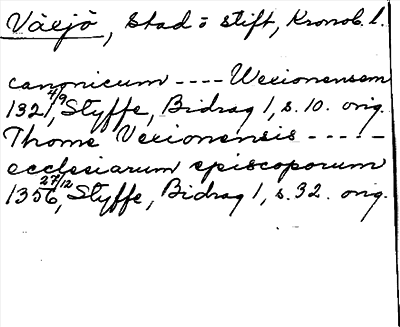 Växjö, Stad o stift, Kronob. l.
canonicum ---- Wexionensem
1321 4/9, Styffe, Bidrag 1, s. 10. orig.
Thome Vexionensis -----
ecclesiarum episcoporum
1356 27/12, Styffe, Bidrag 1, s. 32. orig.